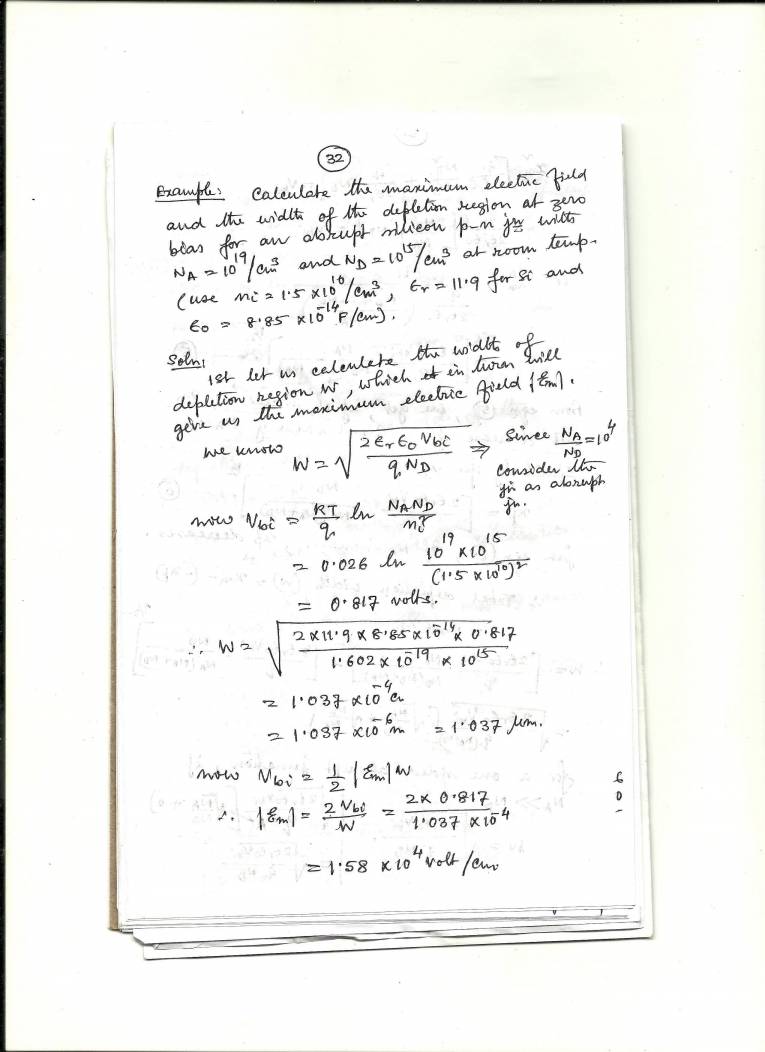 32
Example: Calculate the maximum electric field
and the width of the depletion region at zero
bias for an abrupt silicon p-n jn with
N_A = 10^19/cm^3 and N_D = 10^15/cm^3 at room temp.
(use ni = 1.5 × 10^10/cm^3, ϵr = 11.9 for Si and
ϵ0 = 8.85 × 10^-14 F/cm).
Soln:
1st let us calculate the width of
depletion region W, which in turn will
give us the maximum electric field |Em|.
We know W = √(2 ϵr ϵ0 Vbi / q N_D) ⇒ Since N_A/N_D = 10^4
consider the
jn as abrupt
jn.
now Vbi = KT/q ln N_A N_D / ni^2
= 0.026 ln 10^19 × 10^15 / (1.5 × 10^10)^2
= 0.817 volts.
∴ W = √(2 × 11.9 × 8.85 × 10^-14 × 0.817 / 1.602 × 10^-19 × 10^15)
= 1.037 × 10^-4 cm
= 1.037 × 10^-6 m = 1.037 μm.
now Vbi = 1/2 |Em| W
∴ |Em| = 2 Vbi / W = 2 × 0.817 / 1.037 × 10^-4
= 1.58 × 10^4 volt/cm